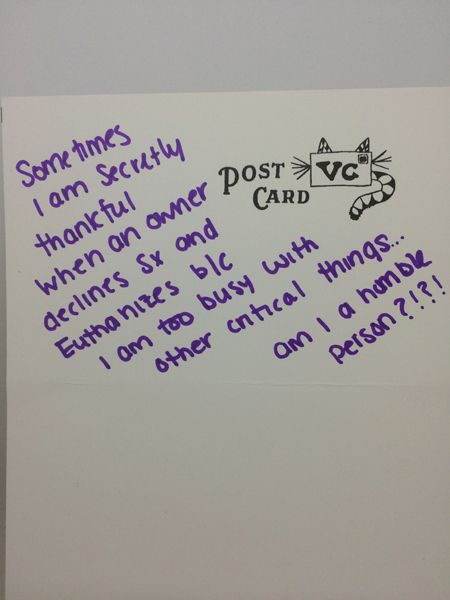 Sometimes
I am secretly
thankful
when an owner
declines sx and
Euthanizes b/c
I am too busy with
other critical things...
am I a horrible
person?!?!
POST
CARD
VC